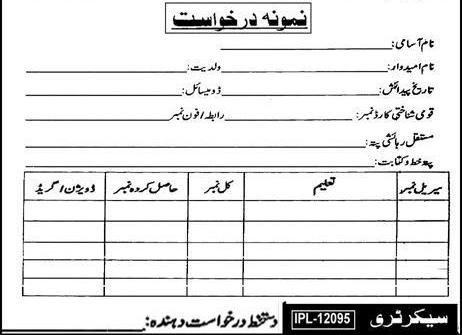 نمونہ درخواست
نام آسامی:
نام امیدوار: ولدیت:
تاریخ پیدائش: ڈومیسائل:
قومی شناختی کارڈ نمبر: رابطہ/فون نمبر
مستقل رہائشی پتہ:
پتہ خط و کتابت:
سیریل نمبر تعلیم کل نمبر حاصل کردہ نمبر ڈویژن/گریڈ
دستخط درخواست دهنده:
IPL-12095 سیکرٹری